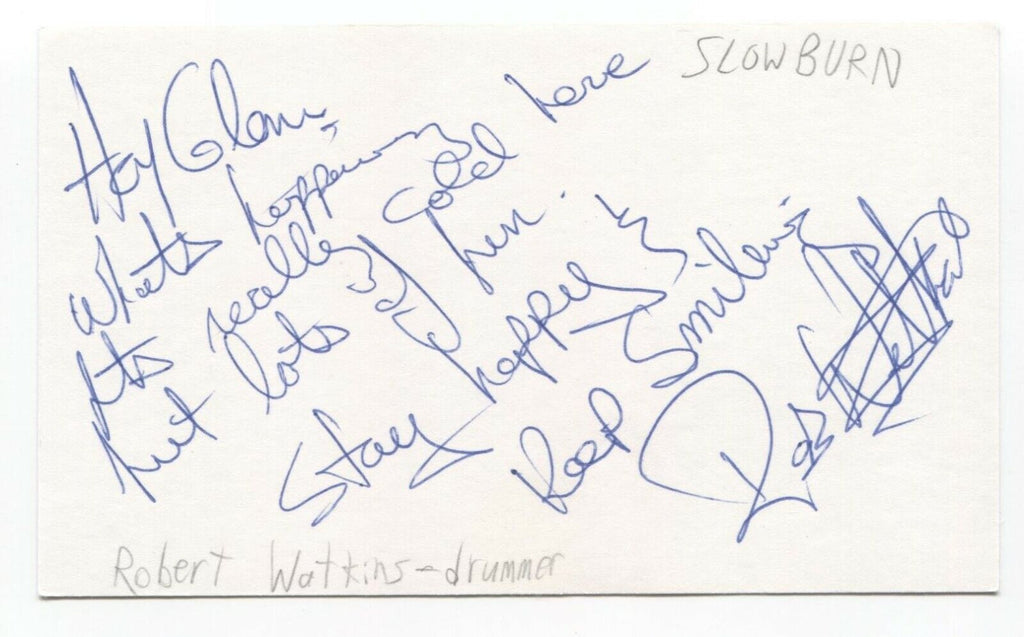 SLOWBURN
Hey Glenn,
Whats happening
Its really cold here
but lots of fun.
Stay happy &
Keep Smiling
Rob Watkins
Robert Watkins - drummer